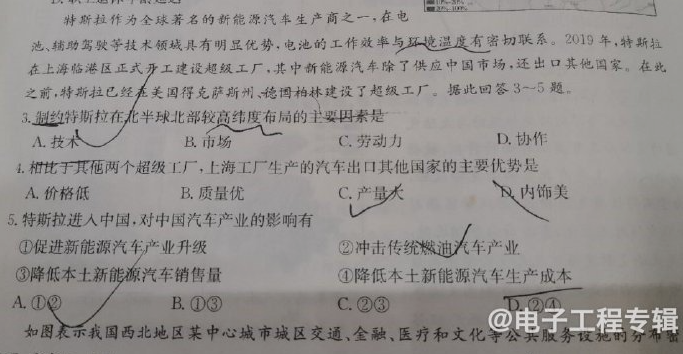 10%~20%
20%~100%
特斯拉作为全球著名的新能源汽车生产商之一,在电
池、辅助驾驶等技术领域具有明显优势,电池的工作效率与环境温度有密切联系。2019年,特斯拉
在上海临港区正式开工建设超级工厂,其中新能源汽车除了供应中国市场,还出口其他国家。在此
之前,特斯拉已经在美国得克萨斯州、德国柏林建设了超级工厂。据此回答3~5题。
3.制约特斯拉在北半球北部较高纬度布局的主要因素是
A.技术 B.市场 C.劳动力 D.协作
4.相比于其他两个超级工厂,上海工厂生产的汽车出口其他国家的主要优势是
A.价格低 B.质量优 C.产量大 D.内饰美
5.特斯拉进入中国,对中国汽车产业的影响有
①促进新能源汽车产业升级 ②冲击传统燃油汽车产业
③降低本土新能源汽车销售量 ④降低本土新能源汽车生产成本
A.①② B.①③ C.②③ D.②④
如图表示我国西北地区某中心城市城区交通、金融、医疗和文化等公共服务设施的分布密
@电子工程专辑